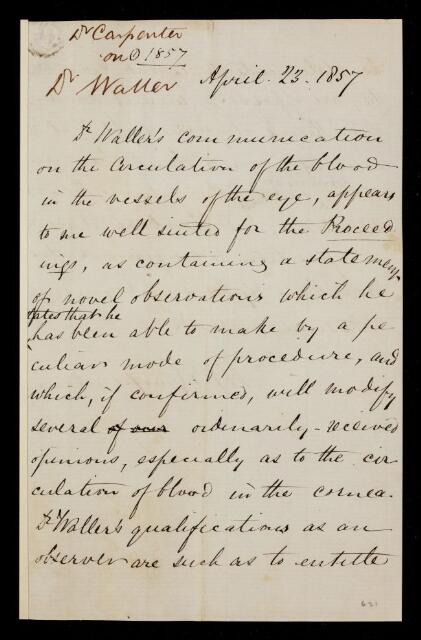 Dr Carpenter
on 1857
Dr Waller April. 23. 1857
Dr Waller's communication
on the Circulation of the blood
in the vessels of the eye, appears
to me well suited for the Proceed
ings, as containing a statement
of novel observations which he
states that he
has been able to make by a pe
culiar mode of procedure, and
which, if confirmed, will modify
several of our ordinarily-received
opinions, especially as to the cir
culation of blood in the cornea.
Dr Waller's qualifications as an
observer are such as to entitle